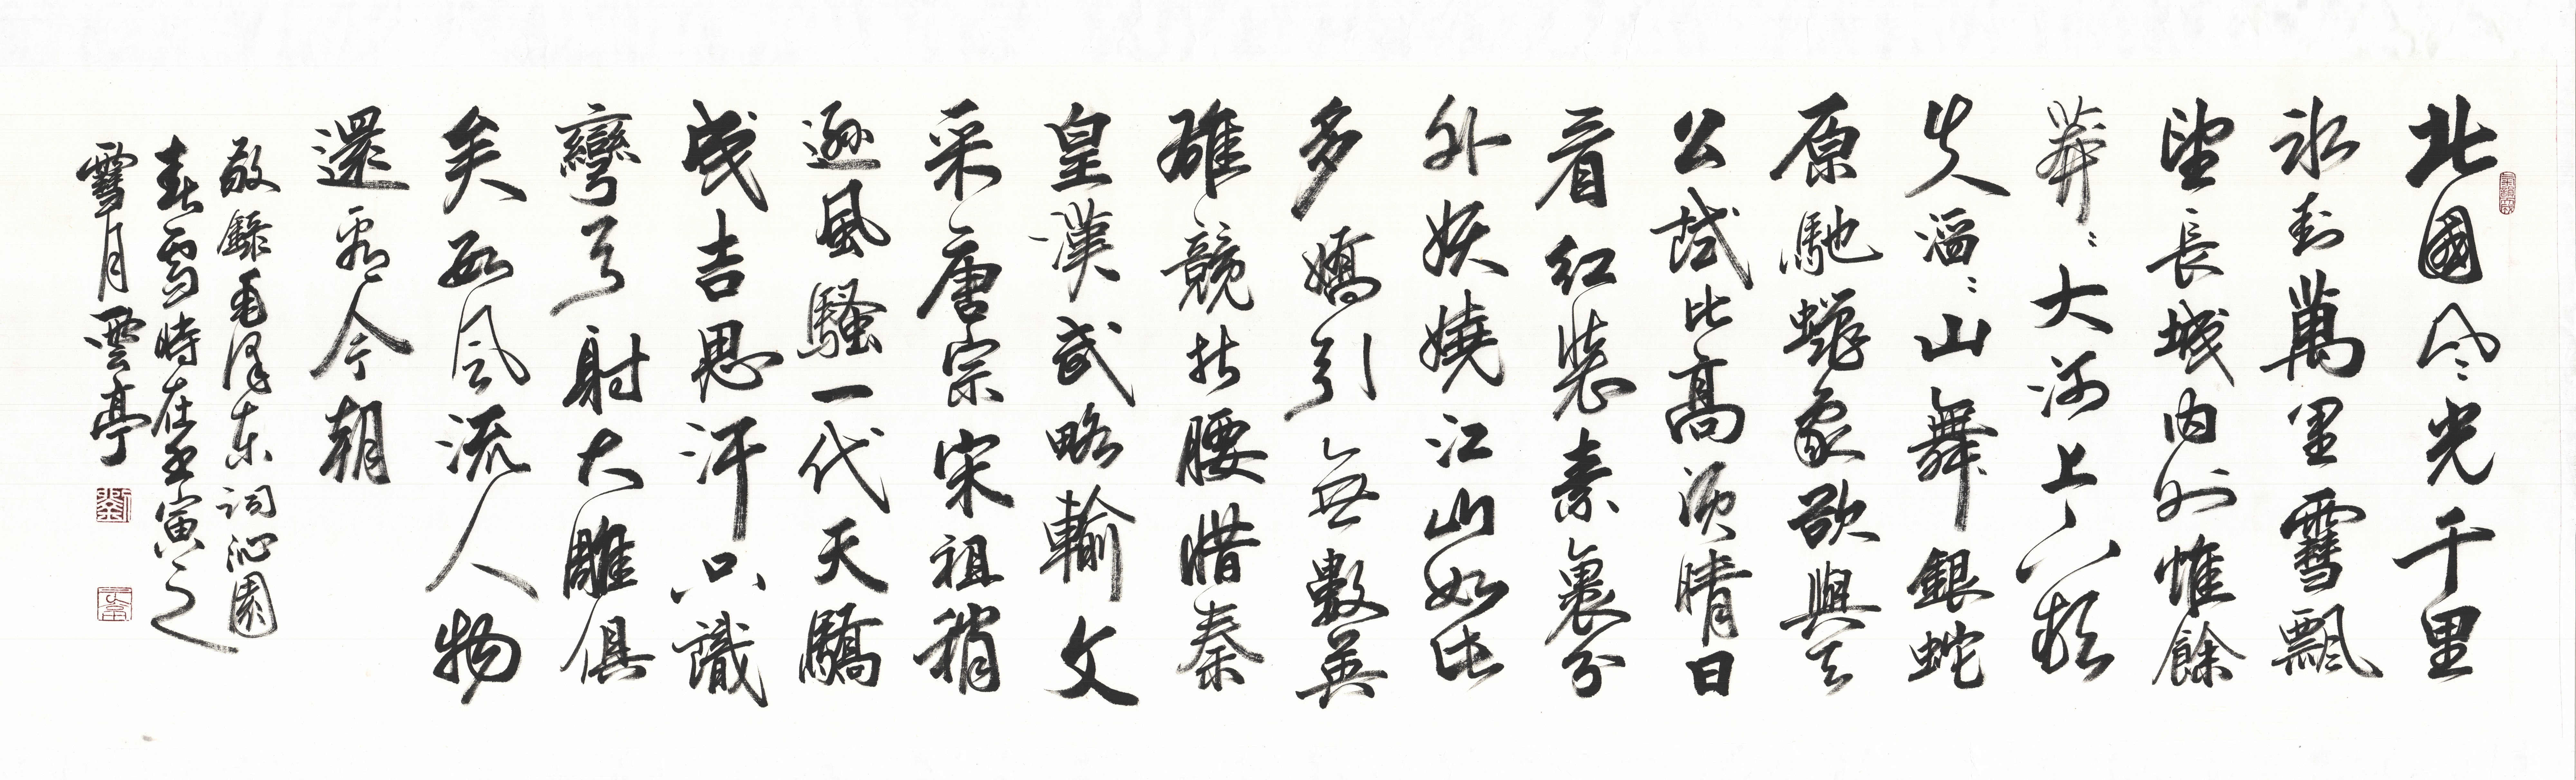 北國風光千里
冰封萬里雪飄
望長城內外惟餘
莽〻大河上下頓
失滔〻山舞銀蛇
原馳蠟象欲與天
公試比高須晴日
看紅裝素裹分
外妖嬈江山如此
多嬌引無數英
雄競折腰惜秦
皇漢武略輸文
采唐宗宋祖稍
遜風騷一代天驕
成吉思汗只識
彎弓射大雕俱
矣數風流人物
還看今朝
敬錄毛澤東詞沁園
春雪時在壬寅之
雪月雲亭